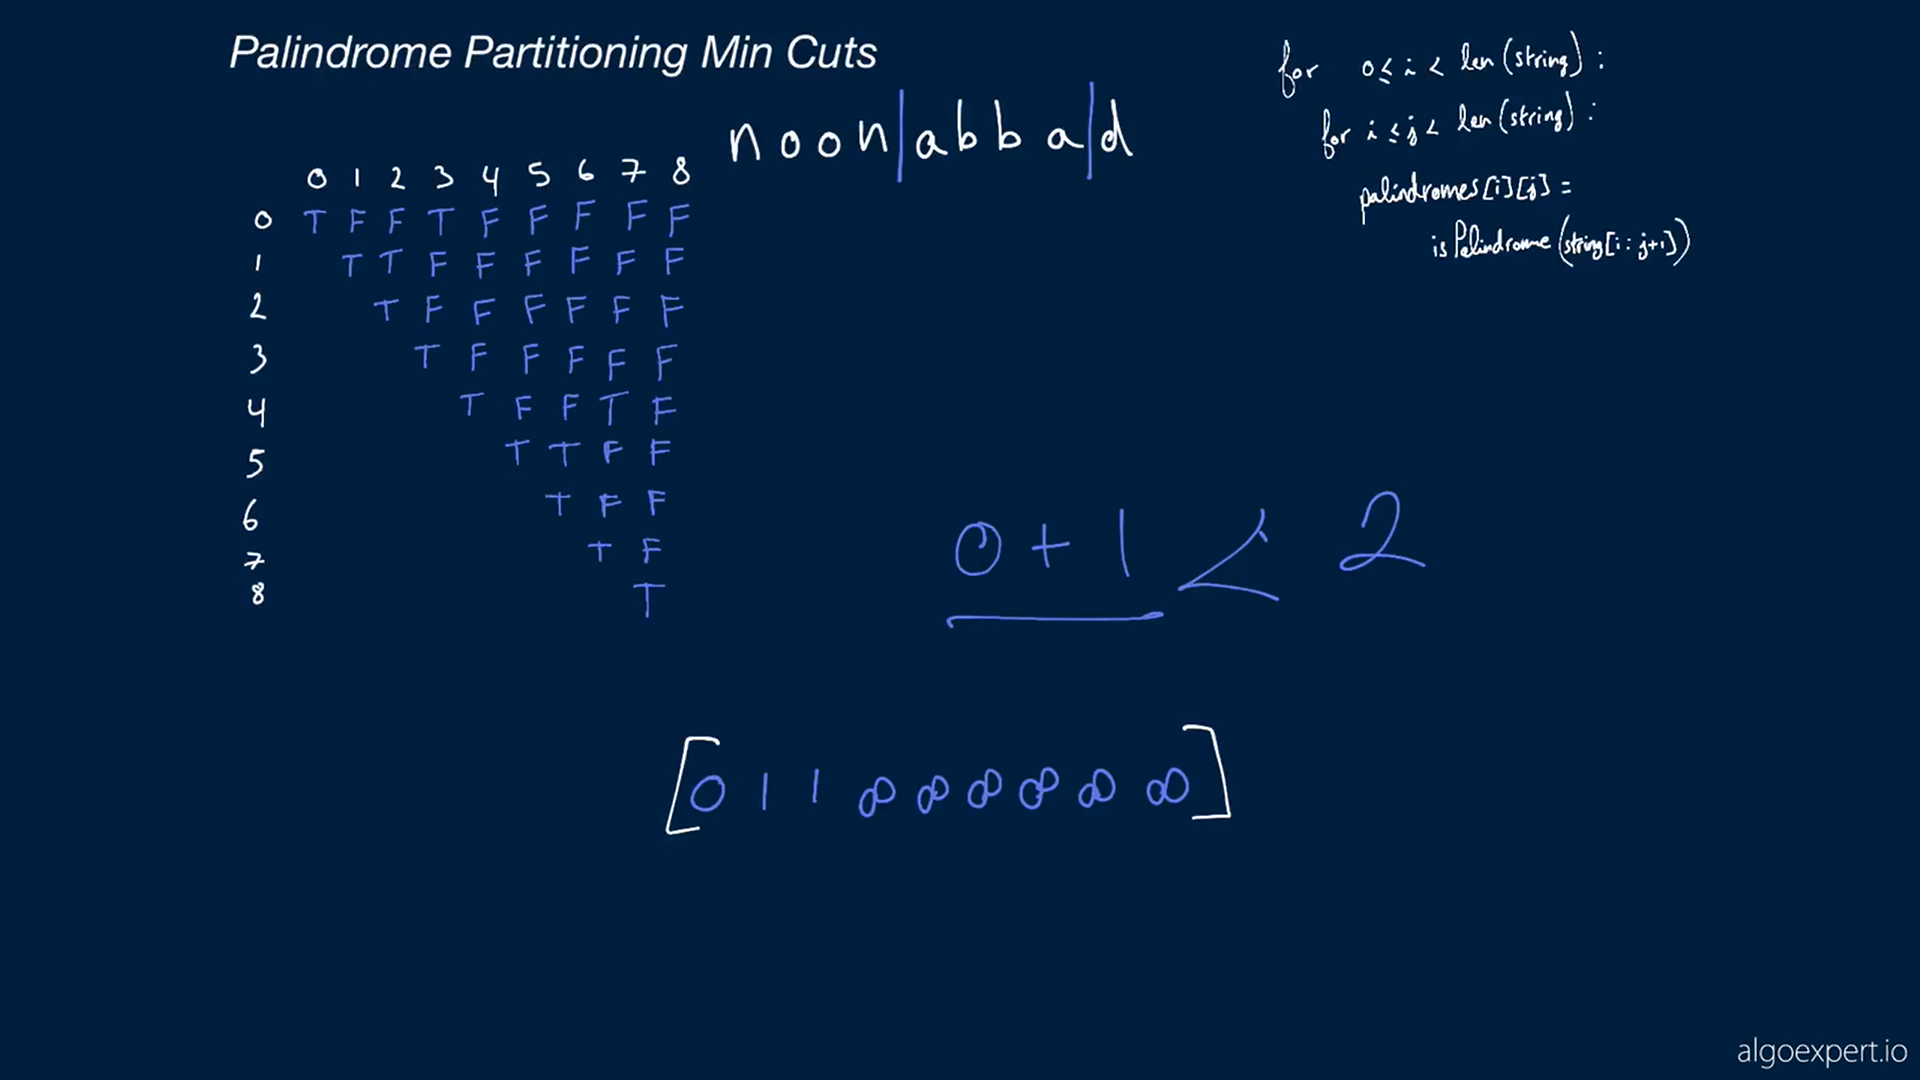 Palindrome Partitioning Min Cuts
for 0 ≤ i < len(string) :
for i ≤ j < len(string) :
palindromes[i][j] =
isPalindrome(string[i : j+1])
noon|abba|d
0 1 2 3 4 5 6 7 8
0 T F F T F F F F F
1 T T F F F F F F
2 T F F F F F F
3 T F F F F F
4 T F F T F
5 T T F F
6 T F F
7 T F
8 T
0 + 1 < 2
[0 1 1 ∞ ∞ ∞ ∞ ∞ ∞]
algoexpert.io